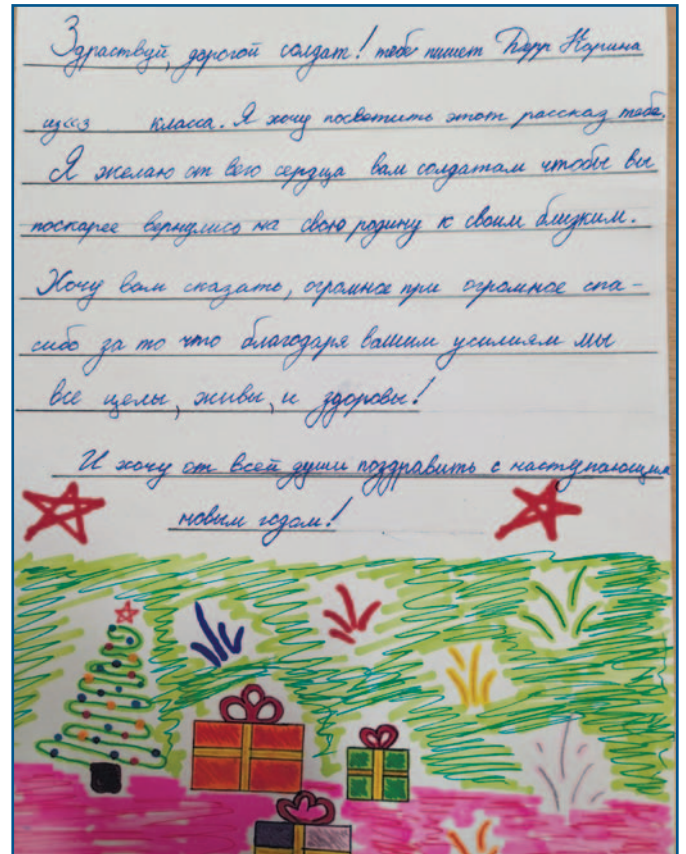 Здраствуй, дорогой солдат! тебе пишет Дурр Карина
из класса. Я хочу посветить этот рассказ тебе.
Я желаю от всго сердца вам солдатам чтобы вы
поскарее вернулись на свою родину к своим близким.
Хочу вам сказать, огромное при огромное спа-
сибо за то что благодаря вашим усилиям мы
все целы, живы, и здоровы!
И хочу от всей души поздравить с наступающим
новым годом!